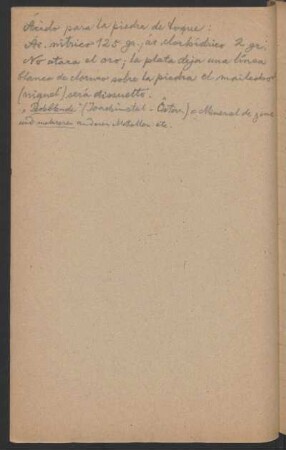 Ácido para la piedra de toque:
Ac. nitrico 125 gr, ac clorhidrico 2 gr.
No ataca el oro; la plata deja una línea
blanca de cloruro sobre la piedra el maillechor
(niquel) será disuelto.
"Pechblende" (Joachimstal - ) Mineral de
und mehreren anderen Metallen etc.